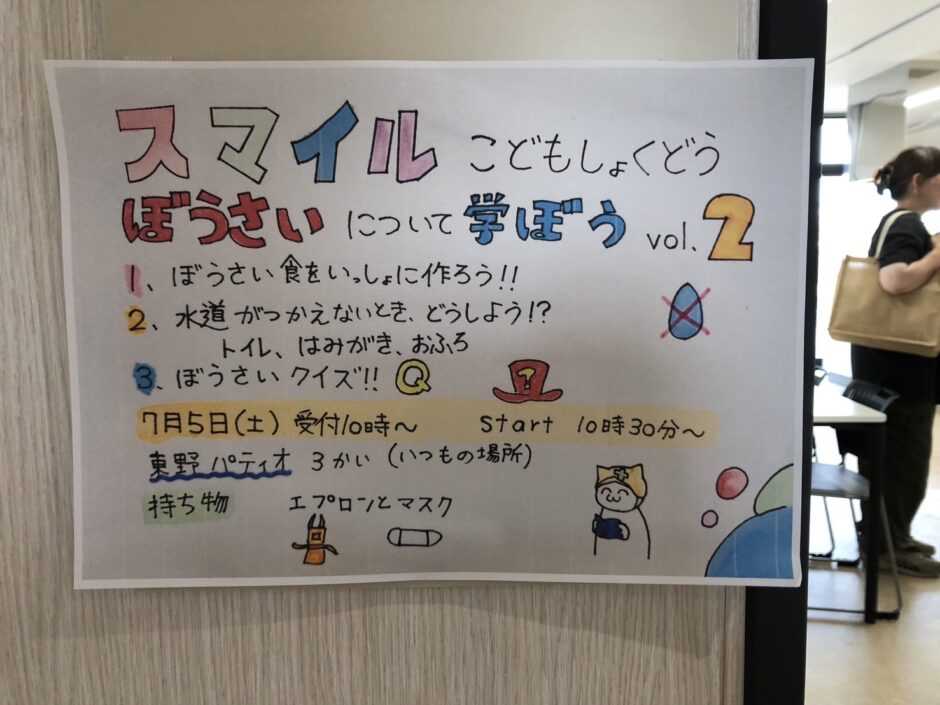 スマイル こどもしょくどう
ぼうさい について 学ぼう vol.2
1、ぼうさい食をいっしょに作ろう!!
2、水道がつかえないとき、どうしよう!?
トイレ、はみがき、おふろ
3、ぼうさいクイズ!! Q ?
7月5日(土) 受付10時〜 Start 10時30分〜
東野パティオ 3かい (いつもの場所)
持ち物 エプロンとマスク